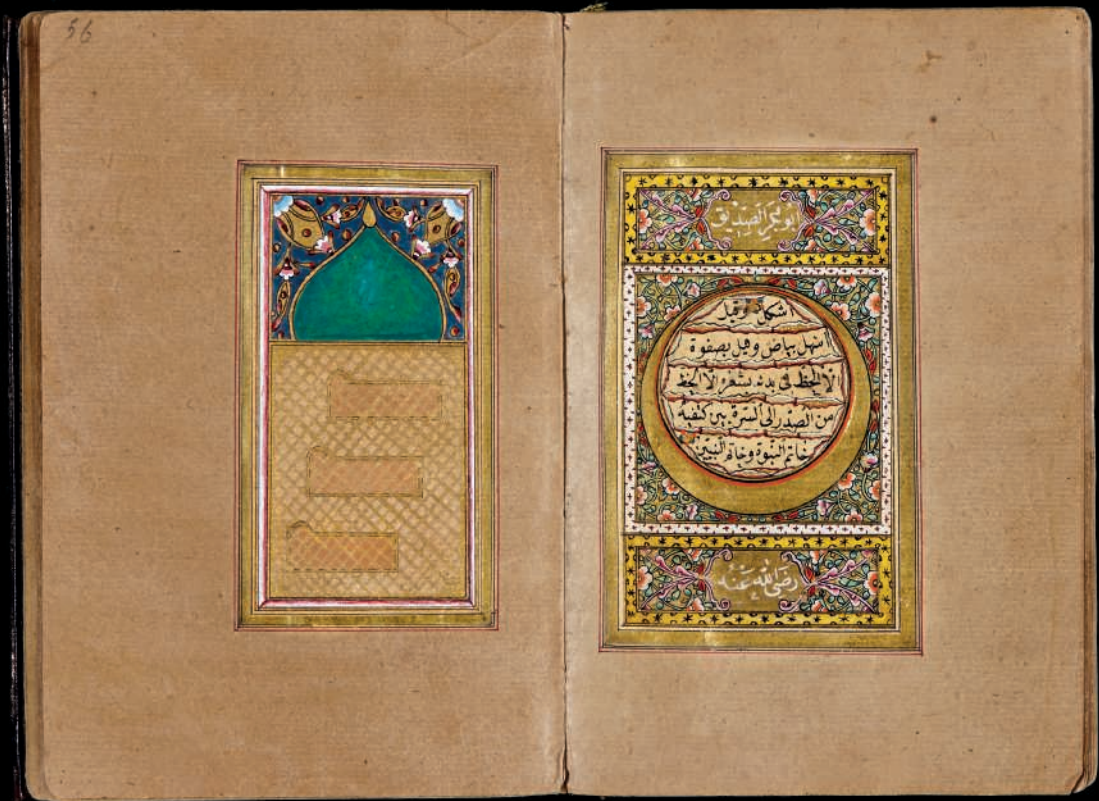 56
ابو بكر الصديق
اشكل وقيل
اشهل بياض وقيل بصفوة
فى بدنه
من الصدر الى السرة بين كتفيه
خاتم النبوة وخاتم النبيين
رضى الله عنه